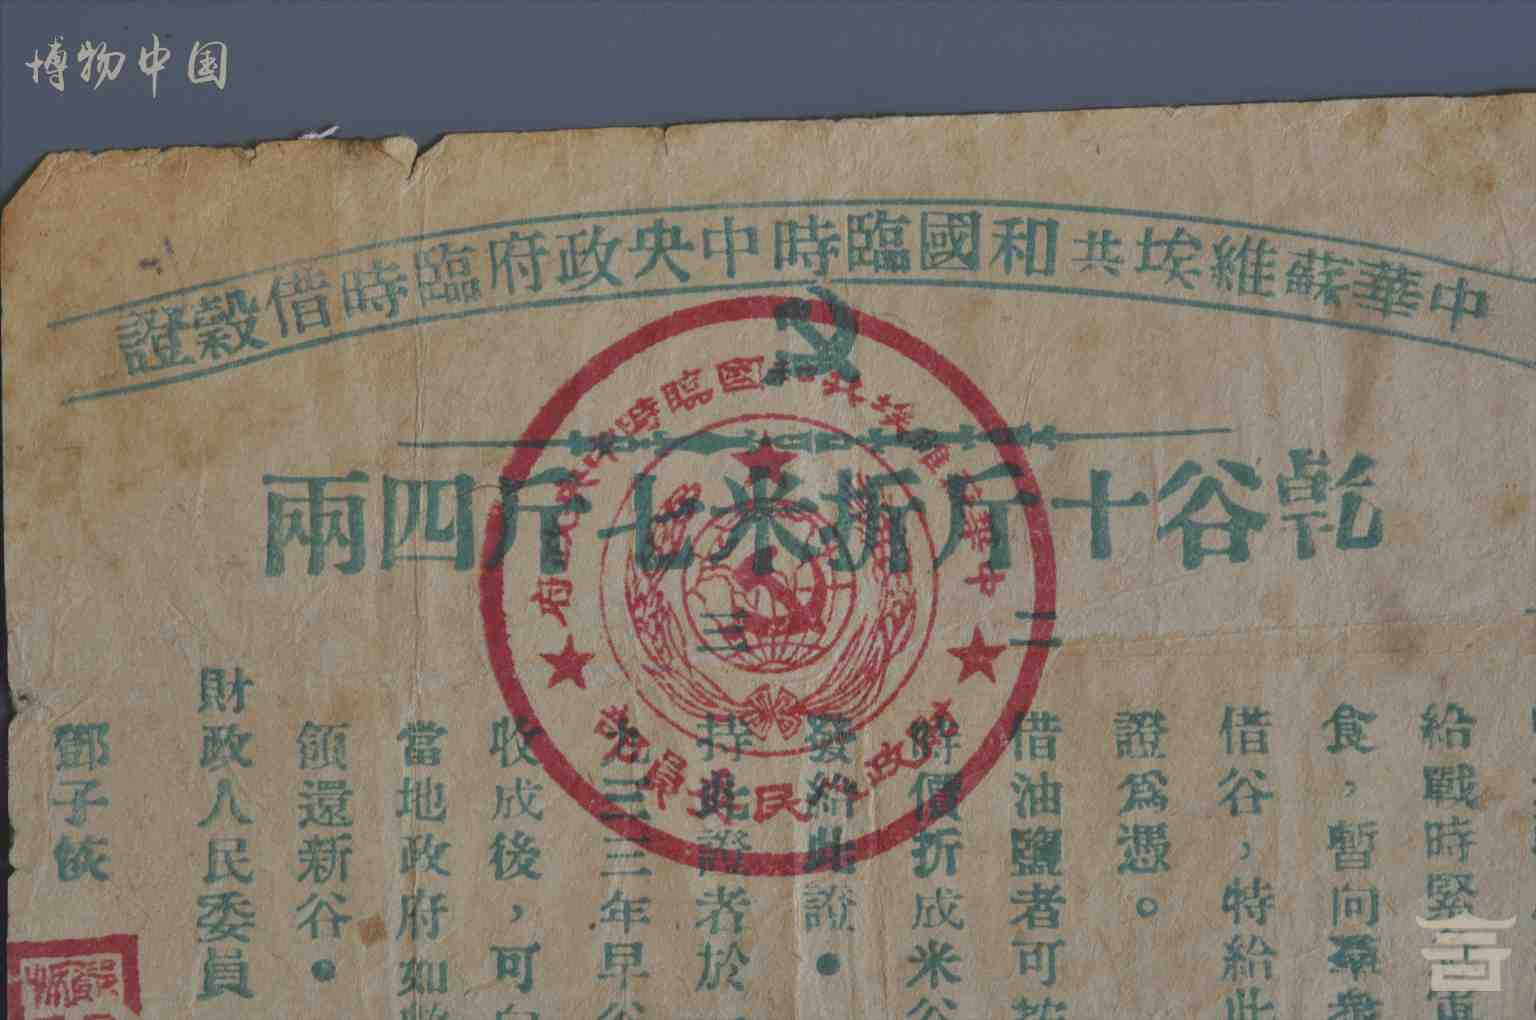 博物中国
中華蘇維埃共和國臨時中央政府臨時借穀證
乾谷十斤折米七斤四兩
一
給戰時緊
食，暫向羣衆
借谷，特給此
證爲憑。
二
借油鹽者可按
時價折成米
發給此證。
三
持此證者於
九三三年早
收成後，可向
當地政府如數
領還新谷。
財政人民委員
鄧子恢
中華維埃共和國臨時中央政府
財政人民委員